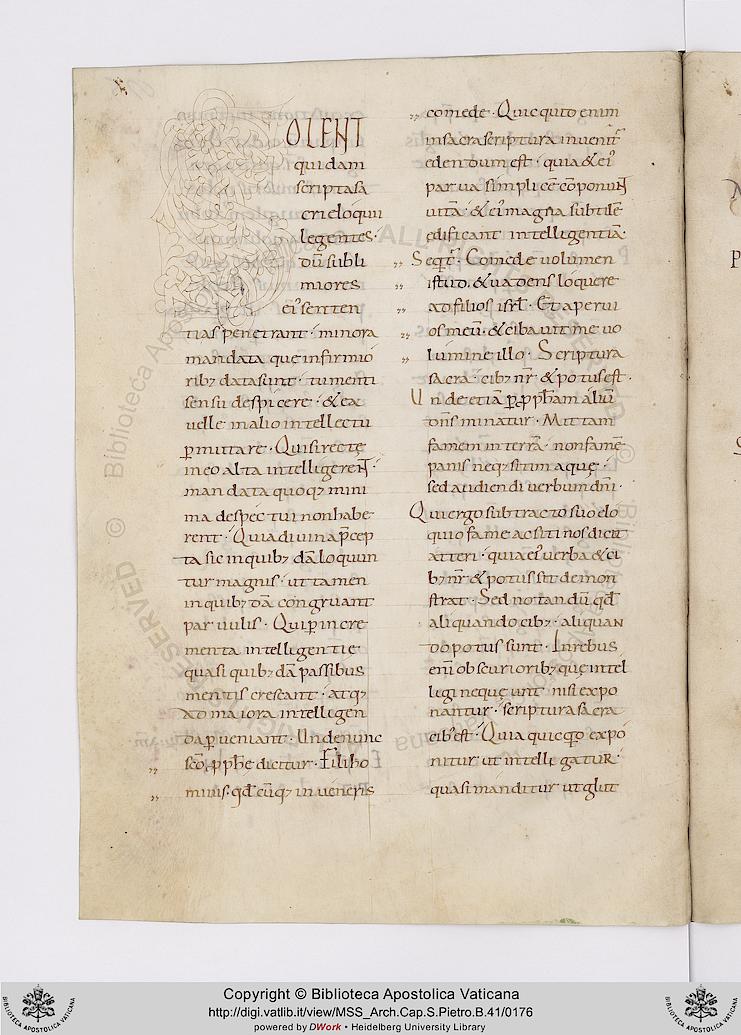 OLENT
quidam
scriptasa
cri eloquii
legentes·
dū subli
miores
ei᾽ senten
tias penetrant· minora
mandata que infirmio
ribꝫ data sunt· tumenti
sensu despicere· & ea
uelle in alio intellectu
ꝑmuttare· Qui si recte
in eo alta intelligerent·
mandata quoqꝫ mini
ma despectui non habe
rent· Quia diuina p̄cep
ta sic in quibꝫdā loquun
tur magnis· ut tamen
in quibꝫdā congruant
paruulis· Qui ꝑ incre
menta intelligentie
quasi quibꝫdā passibus
mentis crescant· atqꝫ
ad maiora intelligen
da ꝑueniant· Unde nunc
sc̄o ꝓph̄e dicitur· Fili ho
minis· qd̄ cūqꝫ inueneris
comede· Quicquid enim
in sacra scriptura inuenit᾽
edendum est· quia & ei᾽
parua simplicē cōponunt
uitā· & ei᾽ magna subtilē
edificant intelligentiā·
Seqt᾽· Comede uolumen
istud· & uadens loquere
ad filios isrł· Et aperui
os meū· & cibauit me uo
lumine illo· Scriptura
sacra· cibꝫ nr̄ & potus est·
Unde etiā ꝑ ꝓph̄am aliū
dn̄s minatur· Mittam
famem in terrā· non famē
panis neqꝫ sitim aque·
sed audiendi uerbum dn̄i·
Qui ergo subtracto suo elo
quio fame ac siti nos dicit
atteri· quia ei᾽ uerba & ci
bꝫ nr̄ & potus sit demon
strat· Sed notandū qd̄
aliquando cibꝫ· aliquan
do potus sunt· In rebus
eni᾽ obscurioribꝫ quę intel
ligi nequeunt nisi expo
nantur· scriptura sacra
cibꝫ est· Quia quicqd̄ expo
nitur ut intelligatur·
quasi manditur ut glut
Copyright © Biblioteca Apostolica Vaticana
http://digi.vatlib.it/view/MSS_Arch.Cap.S.Pietro.B.41/0176
powered by DWork • Heidelberg University Library